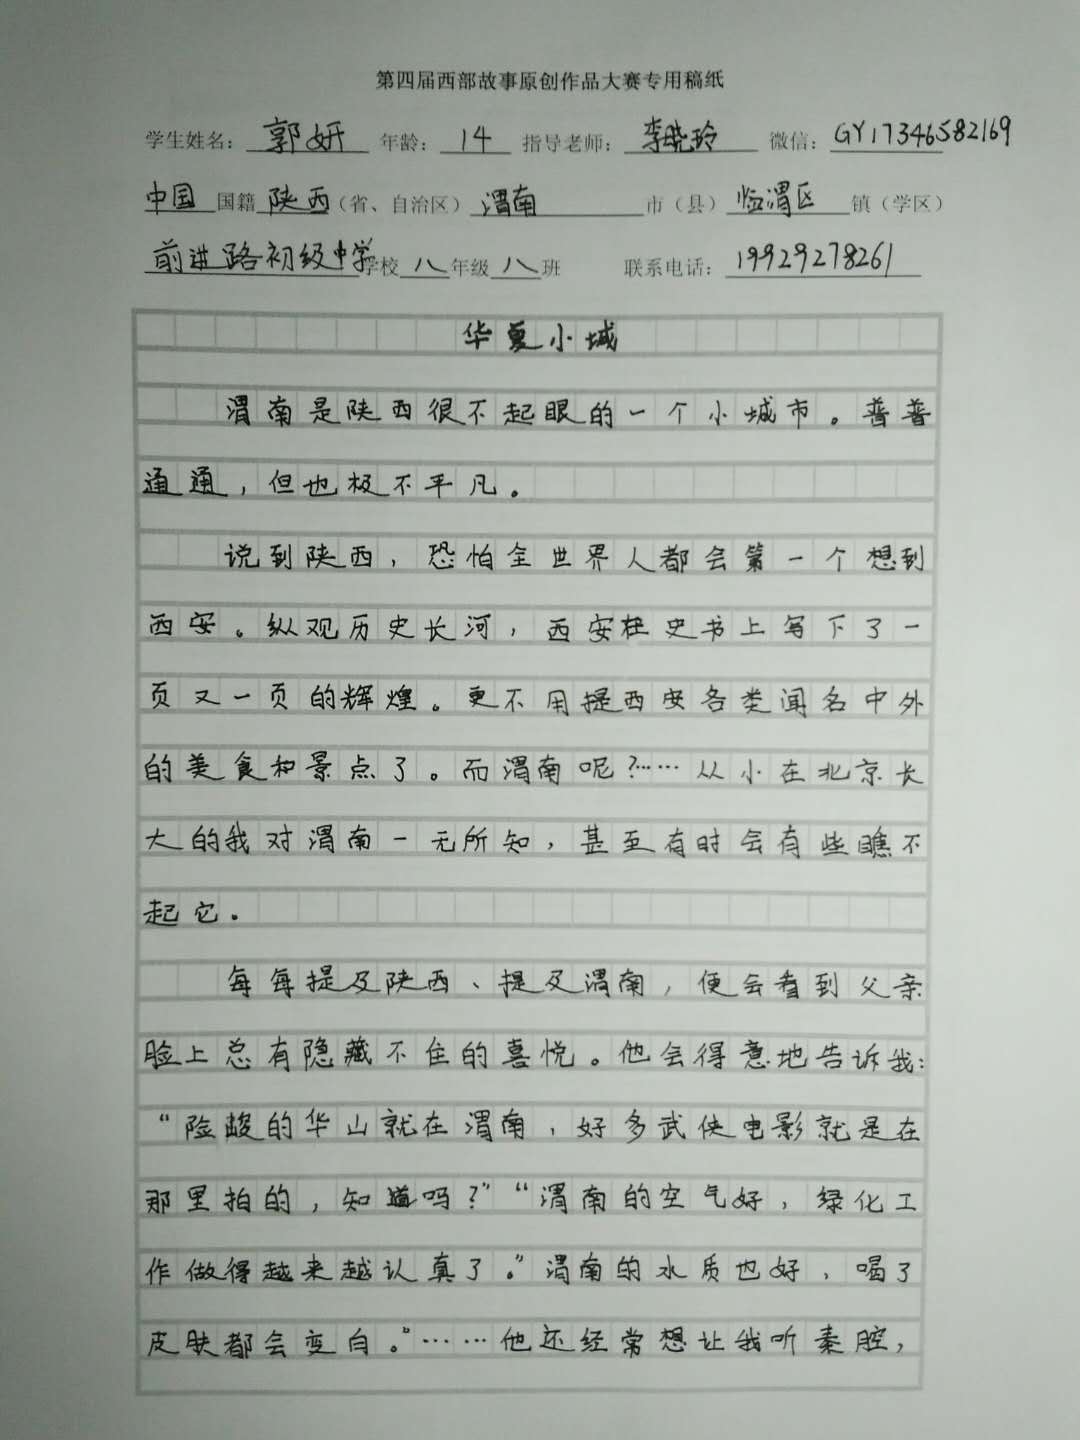 第四届西部故事原创作品大赛专用稿纸
学生姓名：郭妍 年龄：14 指导老师：李晓玲 微信：GY17346582169
中国国籍陕西（省、自治区）渭南市（县）临渭区镇（学区）
前进路初级中学学校八年级八班 联系电话：19929278261
华夏小城
渭南是陕西很不起眼的一个小城市。普普
通通，但也极不平凡。
说到陕西，恐怕全世界人都会第一个想到
西安。纵观历史长河，西安在史书上写下了一
页又一页的辉煌。更不用提西安各类闻名中外
的美食和景点了。而渭南呢？……从小在北京长
大的我对渭南一无所知，甚至有时会有些瞧不
起它。
每每提及陕西、提及渭南，便会看到父亲
脸上总有隐藏不住的喜悦。他会得意地告诉我：
“险峻的华山就在渭南，好多武侠电影就是在
那里拍的，知道吗？”“渭南的空气好，绿化工
作做得越来越认真了。”渭南的水质也好，喝了
皮肤都会变白。”……他还经常想让我听秦腔，